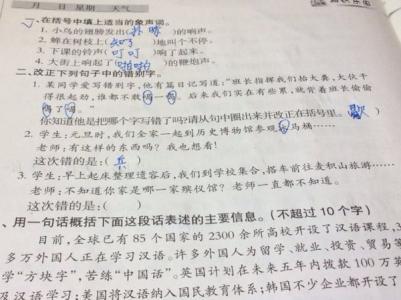 月 日 星期 天气
一、在括号中填上适当的象声词。
1. 小鸟的翅膀发出(扑哧)的响声。
2. 蝉在树枝上(知了)地叫个不停。
3. 下课的铃声(叮叮)响了起来。
4. 大街上响起了(啪啪)的鞭炮声。
二、改正下列句子中的错别字。
1. 某同学爱写错别字,他有篇日记写道:“班长指挥我们抬大粪,大伙干
得很起劲,谁都不敢 一 。后来我们实在有些累,就背着班长偷偷
了 。”
你知道他是把哪个字写错了吗?请从句中圈出来并改正在括号里。(歇)
2. 学生:元旦时,我们全家一起到历史博物馆参观 马桶……
老师:有这样的东西吗?我也想看!
这次错的是:(兵)
3. 学生:早上起床整理遗容后,我们到学校集合,搭车前往麦积山旅游……
老师:不知道你家是哪一家殡仪馆?老师一直都不知道。
这次错的是:( )
、用一句话概括下面这段话表述的主要信息。(不超过 10 个字)
目前,全球已有 85 个国家的 2300 余所高校开设了汉语课程,3
多万外国人正在学习汉语。许多外国人为留学、就业、投资、贸易等
学“方块字”,苦练“中国话”。英国计划在未来五年内拨款 100 万英
及汉语学习;美国将汉语纳入国民教育体系;韩国不少企业都开设了